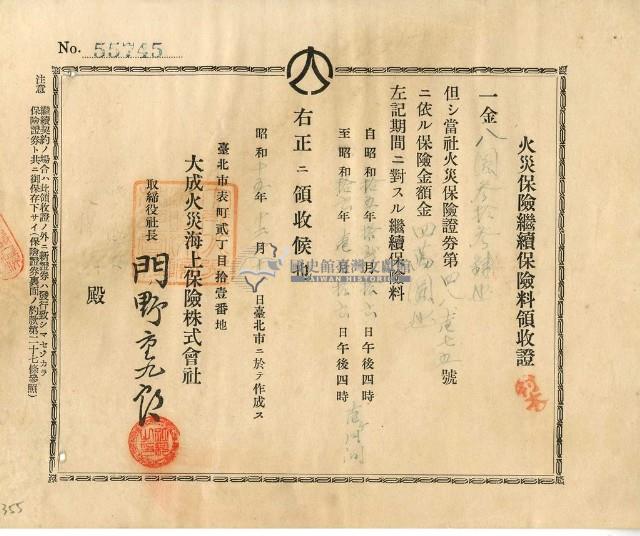 No. 55745
火災保險繼續保險料領收證
一金八圓
但シ當社火災保險證券第 號
ニ依ル保險金額金四萬圓也
左記期間ニ對スル繼續保險料
自昭和拾五年 月 日午後四時
至昭和拾 年 月 日午後四時
右正ニ領收候也
昭和十五年十二月 日臺北市ニ於テ作成ス
臺北市表町貳丁目拾壹番地
大成火災海上保險株式會社
取締役社長 門野重九郎
殿
注意
繼續契約ノ場合ハ此領收證ノ外ニ新證券ハ發行致シマセヌカラ
保險證券ト共ニ御保存下サイ(保險證券裏面ノ約款第二十七條參照)
國史館臺灣文獻館
TAIWAN HISTORICA
355